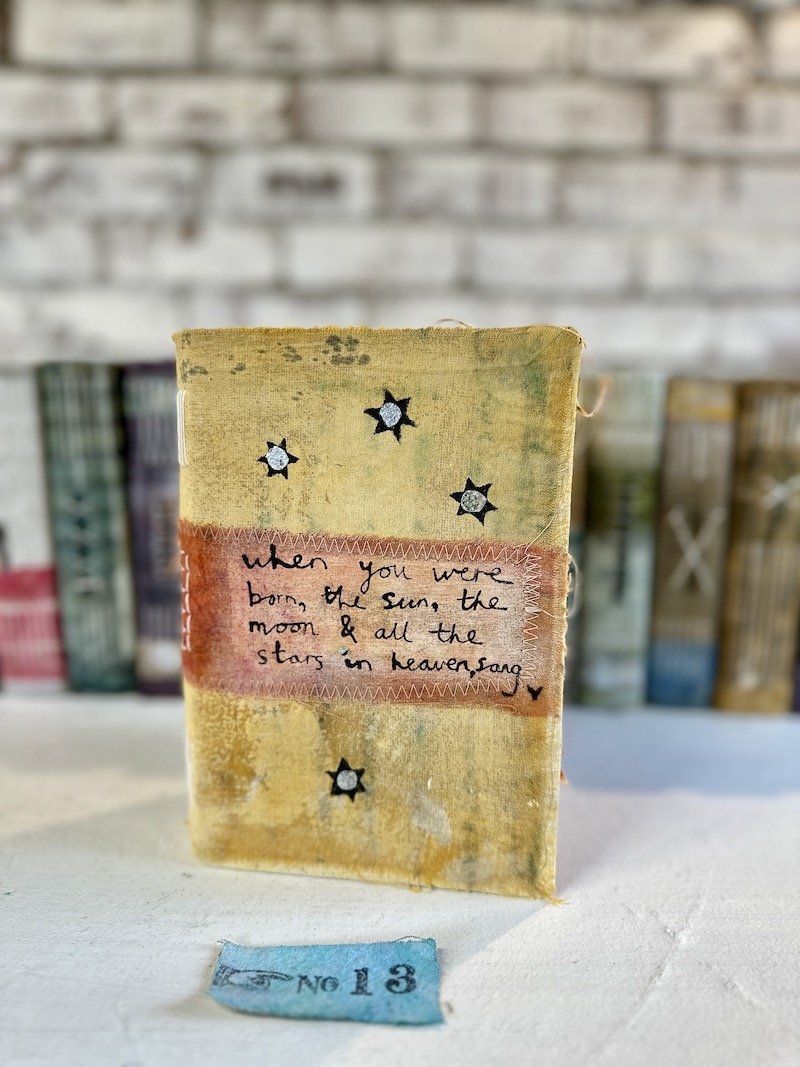 when you were
born, the sun, the
moon & all the
stars in heaven, sang
No 13